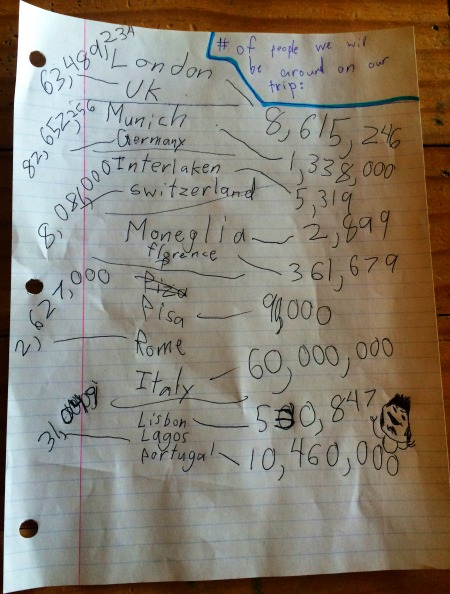 # of people we will
be around on our
trip:
63,489,234
London
UK
8,615,246
82,652,256
Munich
Germany
1,338,000
8,081,000
Interlaken
switzerland
5,319
Moneglia
2,899
florence
361,679
Pisa
Pisa
90,000
2,627,000
Rome
Italy
60,000,000
31,
Lisbon
Lagos
portugal
10,847
10,460,000